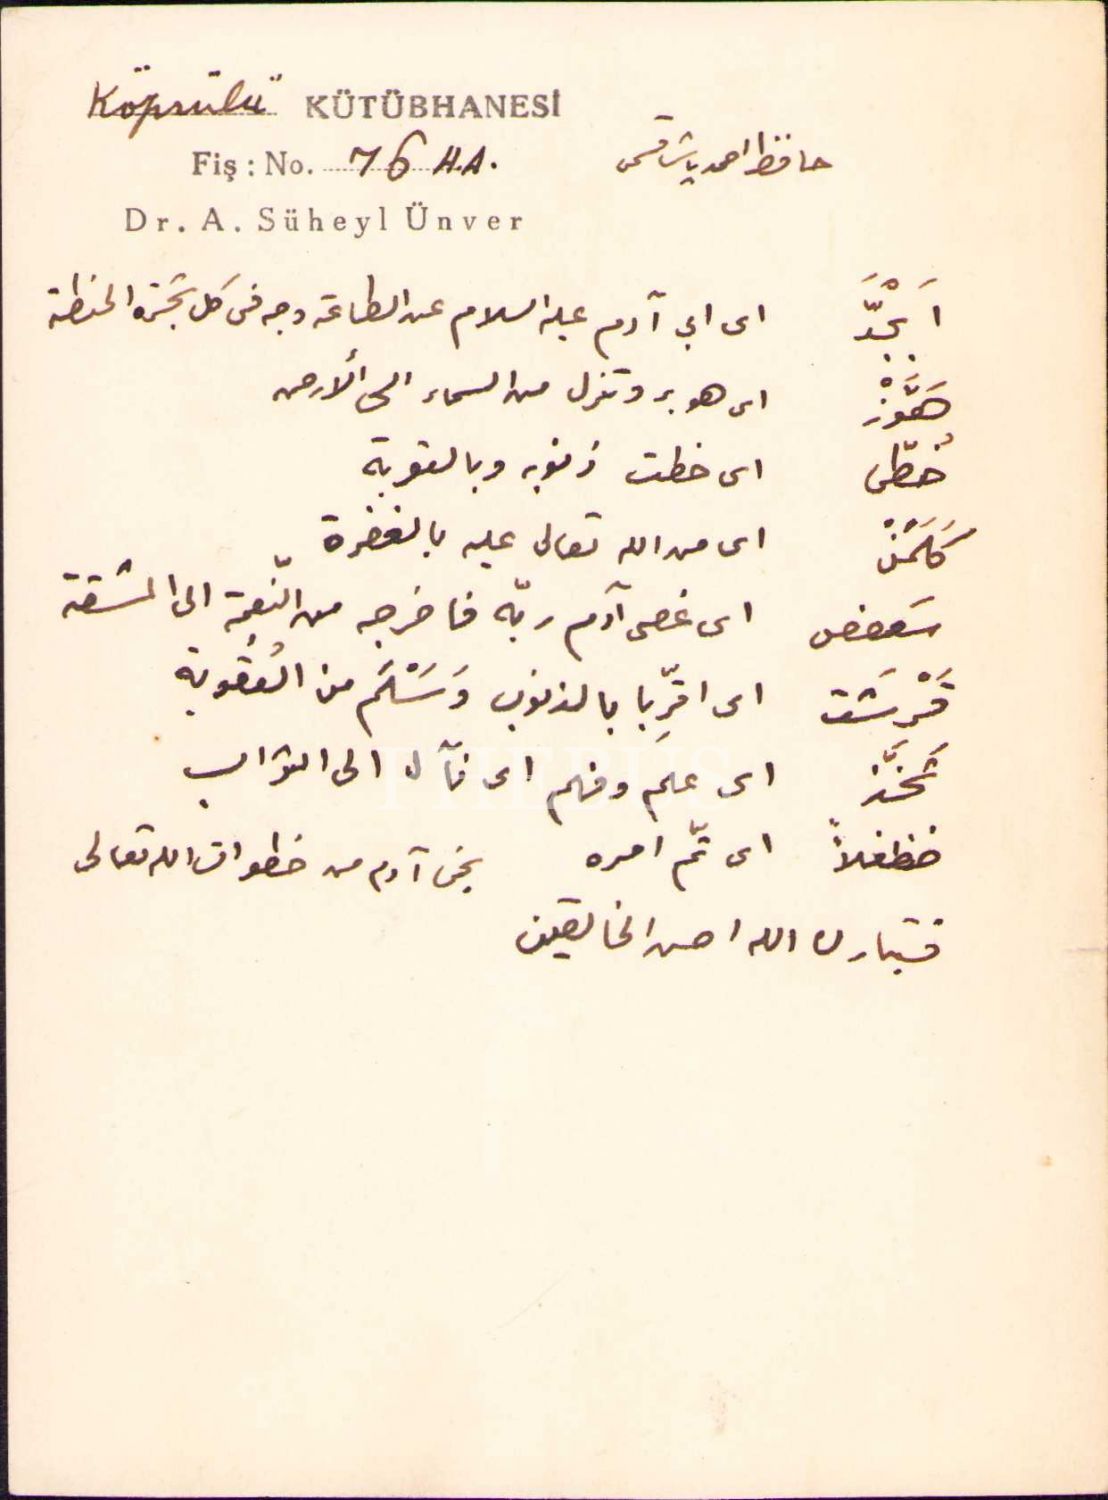 Köprülü KÜTÜBHANESİ
Fiş : No. 76 H.A.
حافظ احمد پاشا قسمی
Dr. A. Süheyl Ünver
اَبْجَدَّ ای ابی آدم علیه السلام عن الطاعة وجه فی کل شجرة الحنطة
هَوَّزْ ای هوبر وتنزل من السماء الی الارض
حُطّی ای حطت ذنوبه وبالتوبة
کَلَمَنْ ای من الله تعالی علیه بالمغفرة
سَعفص ای عصی آدم ربّه فاخرجه من النّعمة الی المشقة
قَرْشَت ای اقرّبا بالذنوب وَسَلَم من العُقُوبة
ثَخَّذ ای علم وفهم ای فآل الی التواب
ضظغلاً ای تمّ امره نجی آدم من خطوات الله تعالی
فتبارك الله احسن الخالقین
THEBUS